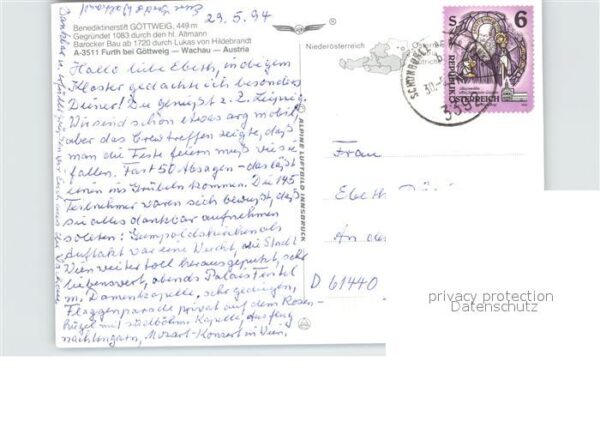 Benediktinerstift GÖTTWEIG, 449 m
Gegründet 1083 durch den hl. Altmann
Barocker Bau ab 1720 durch Lukas von Hildebrandt
A-3511 Furth bei Göttweig — Wachau — Austria
29.5.94
Hallo liebe Ebeth, in obigem
Kloster gedachte ich besonders
Deiner! Du genießt z. Z. Leipzig.
Wir sind schon etwas arg mobil,
aber das Crewtreffen zeigte, daß
man die Feste feiern muß wie sie
fallen. Fast 50 Absagen - das läßt
einen ins Grübeln kommen. Die 145
Teilnehmer waren sich bewußt, daß
sie alles dankbar aufnehmen
sollten: Gumpoldskirchen als
Auftakt war eine Wucht, die Stadt
Wien weiter toll herausgeputzt, sehr
liebenswert, abends Palais
m. Damenkapelle, sehr gediegen,
Flaggenparade privat auf dem Rosen-
hügel mit südböhm. Kapelle, Ausflug
nach Ungarn, Mozart-Konzert in Wien,
ALPINE LUFTBILD INNSBRUCK
Niederösterreich
S 6
REPUBLIK
ÖSTERREICH
Frau
Ebeth
An der
D 61440
privacy protection
Datenschutz